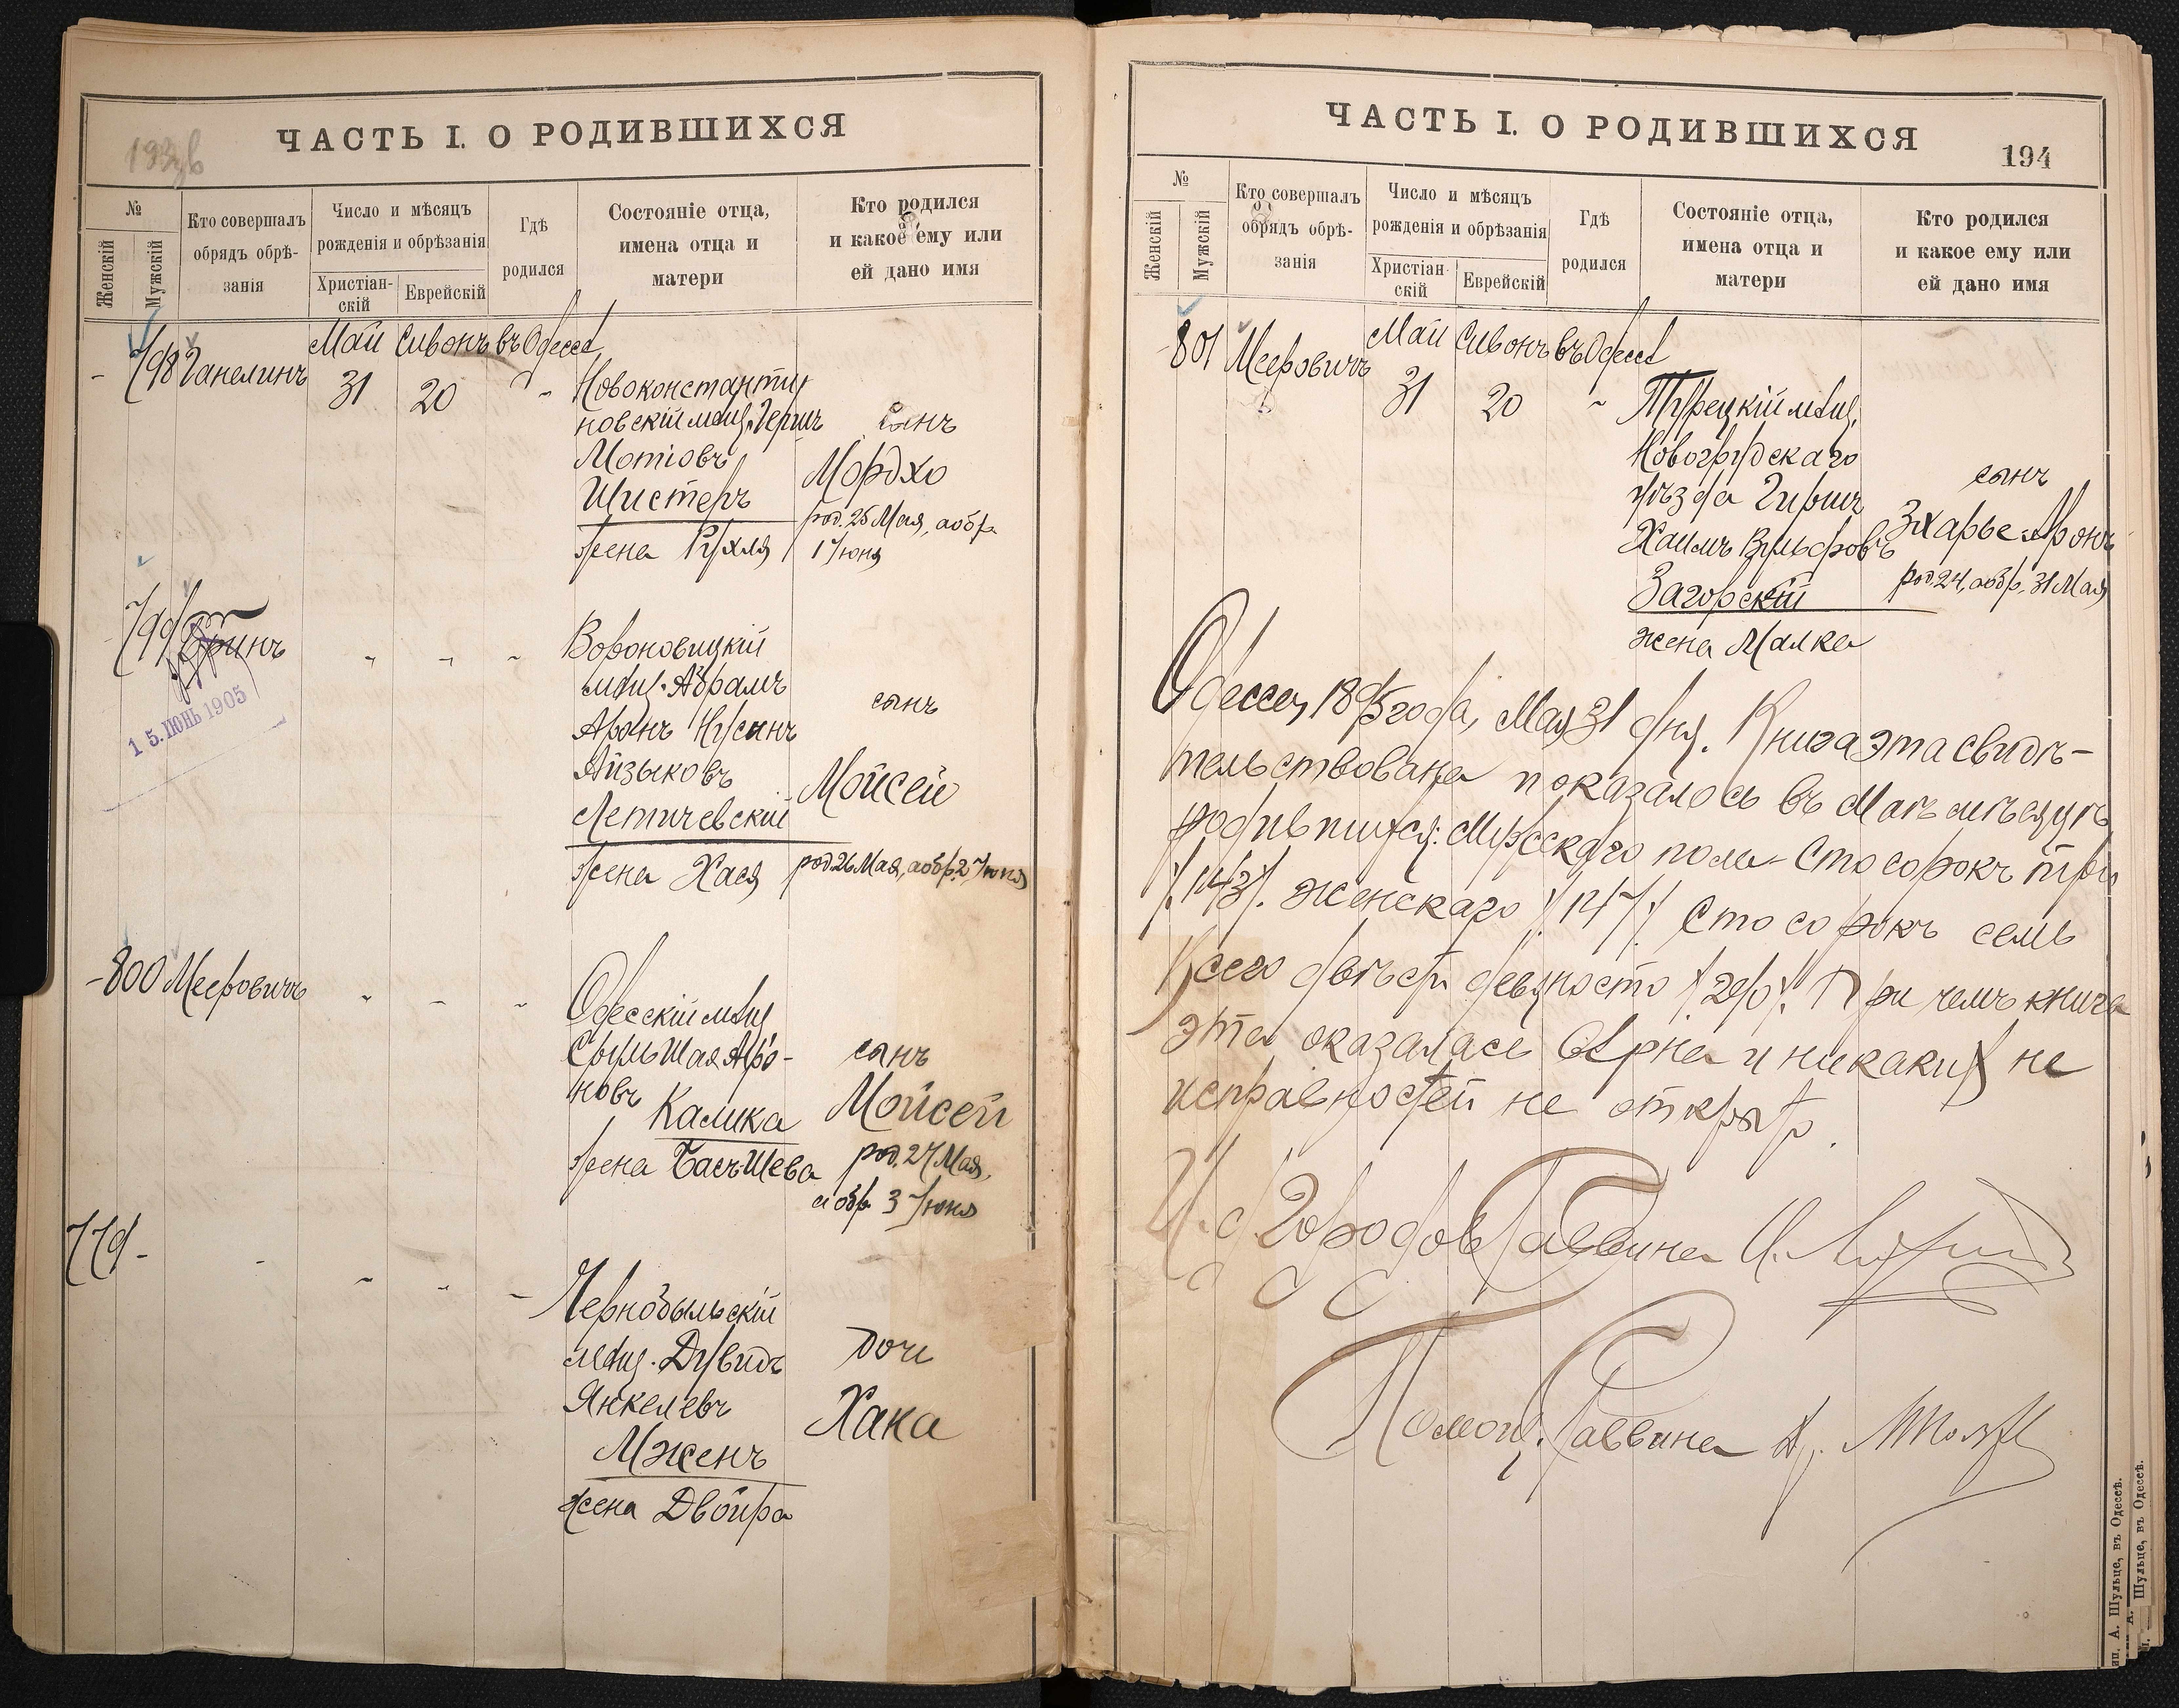 193об
ЧАСТЬ I. О РОДИВШИХСЯ
№
Женскій
Мужскій
Кто совершалъ
обрядъ обрѣ-
занія
Число и мѣсяцъ
рожденія и обрѣзанія
Христіан-
скій
Еврейскій
Гдѣ
родился
Состояніе отца,
имена отца и
матери
Кто родился
и какое ему или
ей дано имя
Май Сивонъ въ Одессѣ
- 798 Ганелинъ 31 20 - Новоконстанти
новскій мѣщ. Герш
Мотіовъ
Шистеръ
жена Рухля
сынъ
Мордхо
род. 25 Мая, а обр.
1 Іюня
799 Гринъ - - - Вороновицкій
мѣщ. Абрамъ
Аронъ Нусынъ
Айзыковъ
Летичевскій
жена Хася
сынъ
Мойсей
род. 26 Мая, а обр. 2 Іюня
15. ІЮНЬ 1905
- 800 Мееровичъ - - - Одесскій мѣщ
Сруль Шая Аро-
новъ
Калика
жена Бась-Шева
сынъ
Мойсей
род. 27 Мая,
а обр. 3 Іюня
779 - - - - - Чернобыльскій
мѣщ. Дувидъ
Янкелевъ
Мженъ
жена Двойра
дочь
Хана
ЧАСТЬ I. О РОДИВШИХСЯ
194
№
Женскій
Мужскій
Кто совершалъ
обрядъ обрѣ-
занія
Число и мѣсяцъ
рожденія и обрѣзанія
Христіан-
скій
Еврейскій
Гдѣ
родился
Состояніе отца,
имена отца и
матери
Кто родился
и какое ему или
ей дано имя
Май Сивонъ въ Одессѣ
- 801 Мееровичъ 31 20 - Турецкій мѣщ.
Новогрудскаго
уѣзда Гиршъ
Хаимъ Вульфовъ
Загорскій
жена Малка
сынъ
Зхарье Аронъ
род. 24, а обр. 31 Мая
Одесса, 1895 года, Мая 31 дня. Книга эта свидѣ-
тельствована показалось въ Маѣ мѣсяцѣ
родившихся: Мужскаго пола - Сто сорокъ три
/143/. женскаго /147/ Сто сорокъ семь
Всего двѣсти девяносто /290/. При чемъ книга
эта оказалась вѣрна и никакихъ не
исправностей не открыто.
И. д. Городов Раввина
Помощ. Раввина
Тип. А. Шульце, въ Одессѣ.
Шульце, въ Одессѣ.